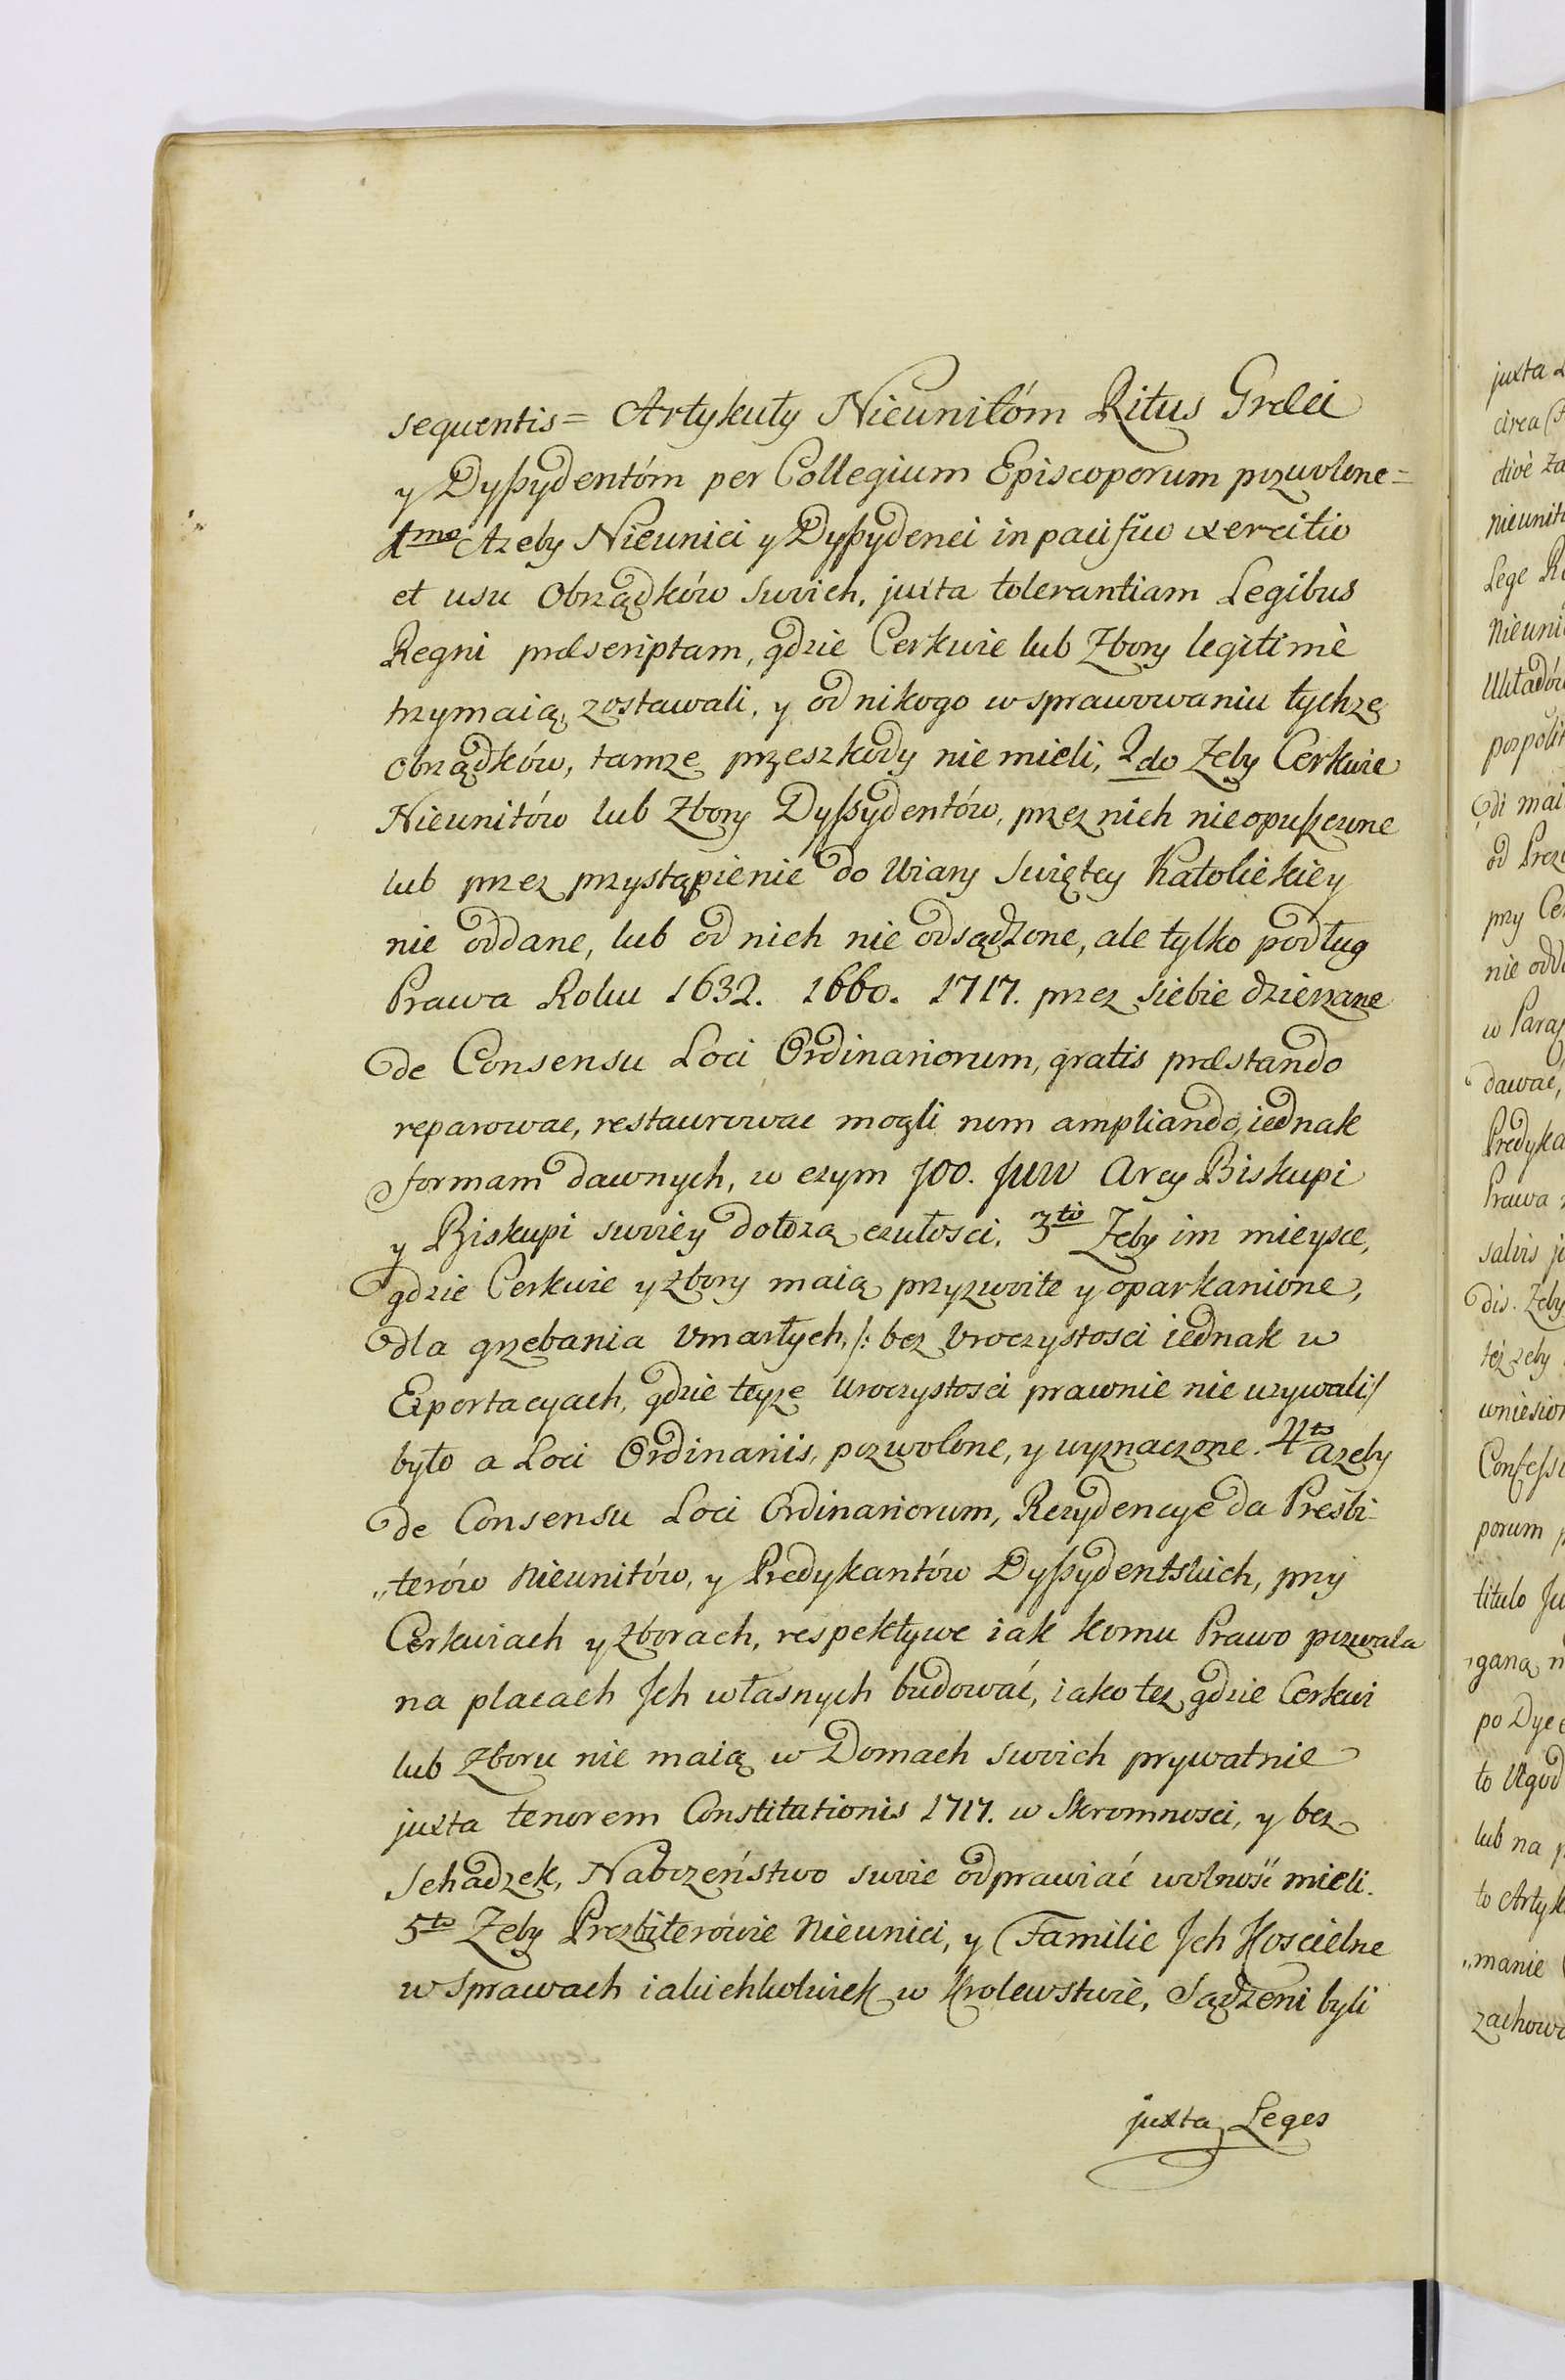 sequentis = Artykuły Nieunitóm Ritus Græci
y Dyßydentóm per Collegium Episcoporum pozwolone =
1mo Azeby Nieunici y Dyßydenci in pacifico exercitio
et usu Obrządków swoich, juxta tolerantiam Legibus
Regni præscriptam, gdzie Cerkwie lub Zbory legitimè
trzymaią, zostawali, y od nikogo w sprawowaniu tychze
obrządków, tamze przeszkody nie mieli, 2do Zeby Cerkwie
Nieunitów lub Zbory Dyßydentów, przez nich nieopuszczone
lub przez przystąpienie do Wiary Swiętey Katolickiey
nie oddane, lub od nich nie odsądzone, ale tylko podług
Prawa Roku 1632. 1660. 1717. przez siebie dzierzane
de Consensu Loci Ordinariorum, gratis præstando
reparowac, restaurowac mogli non ampliando, iednak
formam dawnych, w czym JOO. JWW Arcy Biskupi
y Biskupi swoiey dołozą czułosci. 3tio Zeby im mieysce,
gdzie Cerkwie y Zbory maią przyzwoite y oparkanione,
dla grzebania Umarłych, /: bez Uroczystosci iednak w
Exportacyach, gdzie teyze Uroczystosci prawnie nie uzywali /
było a Loci Ordinariis, pozwolone, y wyznaczone. 4to azeby
de Consensu Loci Ordinariorum, Rezydencye da Presbi-
„terów Nieunitów, y Predykantów Dyßydentskich, przy
Cerkwiach y Zborach, respektywe iak komu Prawo pozwala
na placach Jch własnych budować, iako tez gdzie Cerkwi
lub Zboru nie maią w Domach swoich prywatnie
juxta tenorem Constitutionis 1717. w Skromnosci, y bez
Schadzek, Nabozeństwo swoie odprawiać wolność mieli.
5to Zeby Prezbiterówie Nieunici, y Familie Jch Koscielne
w sprawach iakichkolwiek w Krolewstwie, Sądzeni byli
juxta Leges
juxta
circa
divè
nieunit
Lege
Nieuni
Układów
pospolit
di mai
od Prez
przy Ce
nie odd
w Para
dawac,
Predyka
Prawa
salvis
dis. Zeby
też zeby
wniesion
Confeßi
porum
titulo
„ganą
po Dye
to Ugod
lub na
to Artyk
„manie
zachowa